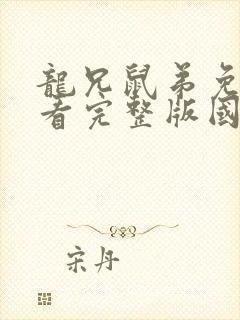 龍兄鼠弟免
看完整版國
宋丹